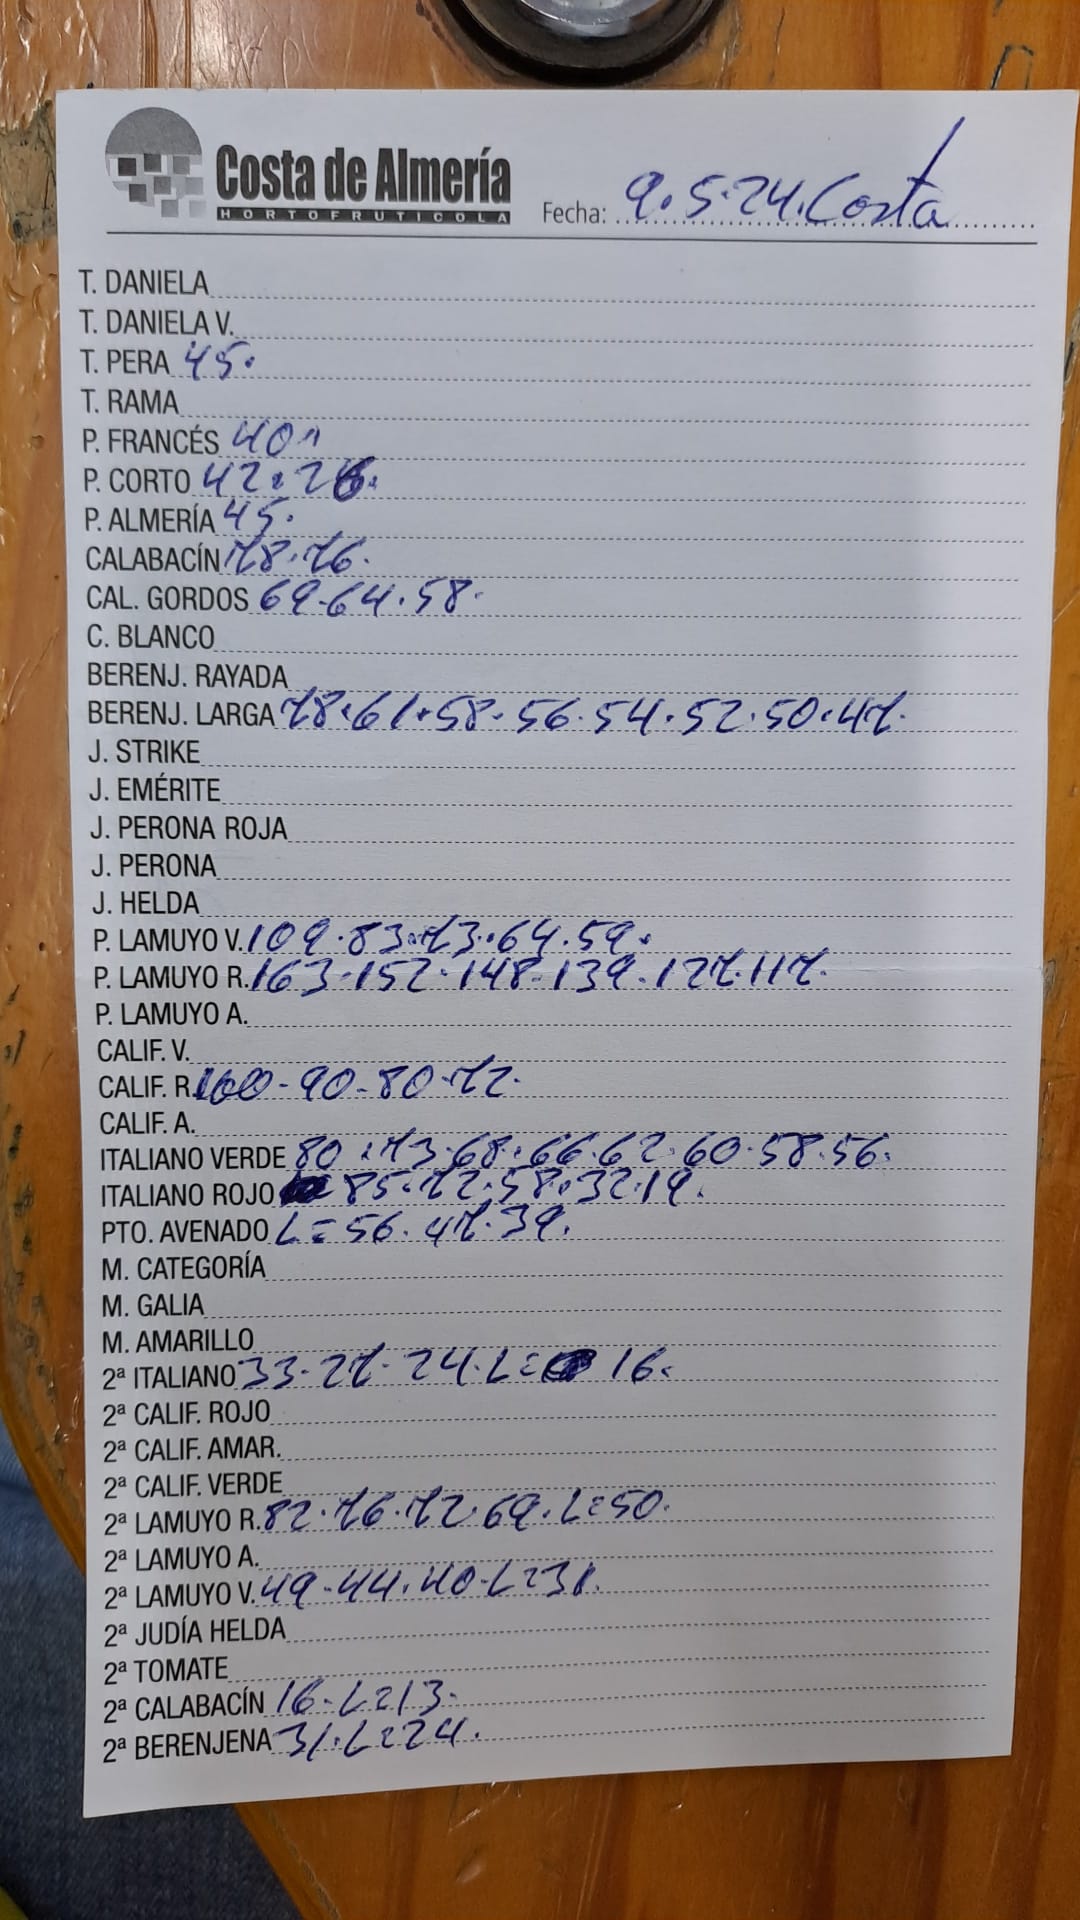 Costa de Almería
HORTOFRUTICOLA
Fecha: 9.5.24. Costa
T. DANIELA
T. DANIELA V.
T. PERA 45.
T. RAMA
P. FRANCÉS 40
P. CORTO 42.26.
P. ALMERÍA 45.
CALABACÍN 78.76.
CAL. GORDOS 69.64.58.
C. BLANCO
BERENJ. RAYADA
BERENJ. LARGA 78.61.58.56.54.52.50.47.
J. STRIKE
J. EMÉRITE
J. PERONA ROJA
J. PERONA
J. HELDA
P. LAMUYO V. 109.83.73.64.59.
P. LAMUYO R. 163.152.148.139.127.117.
P. LAMUYO A.
CALIF. V.
CALIF. R. 100-90-80-72.
CALIF. A.
ITALIANO VERDE 80.73.68.66.62.60.58.56.
ITALIANO ROJO 85.72.58.32.19.
PTO. AVENADO L=56.47.39.
M. CATEGORÍA
M. GALIA
M. AMARILLO
2ª ITALIANO 33.27.24.L= 16.
2ª CALIF. ROJO
2ª CALIF. AMAR.
2ª CALIF. VERDE
2ª LAMUYO R. 82.76.72.69.L=50.
2ª LAMUYO A.
2ª LAMUYO V. 49.44.40.L=31.
2ª JUDÍA HELDA
2ª TOMATE
2ª CALABACÍN 16.L=13.
2ª BERENJENA 31.L=24.